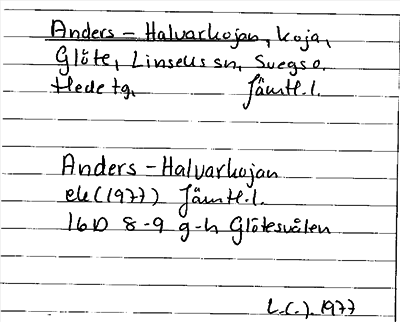 Anders-Halvarkojan, koja,
Glöte, Linsells sn, Svegs o.
Hede tg. Jämtl.l.
Anders-Halvarkojan
ek (1977) Jämtl.l.
16D 8-9 g-h Glötesvålen
L.C.J. 1977